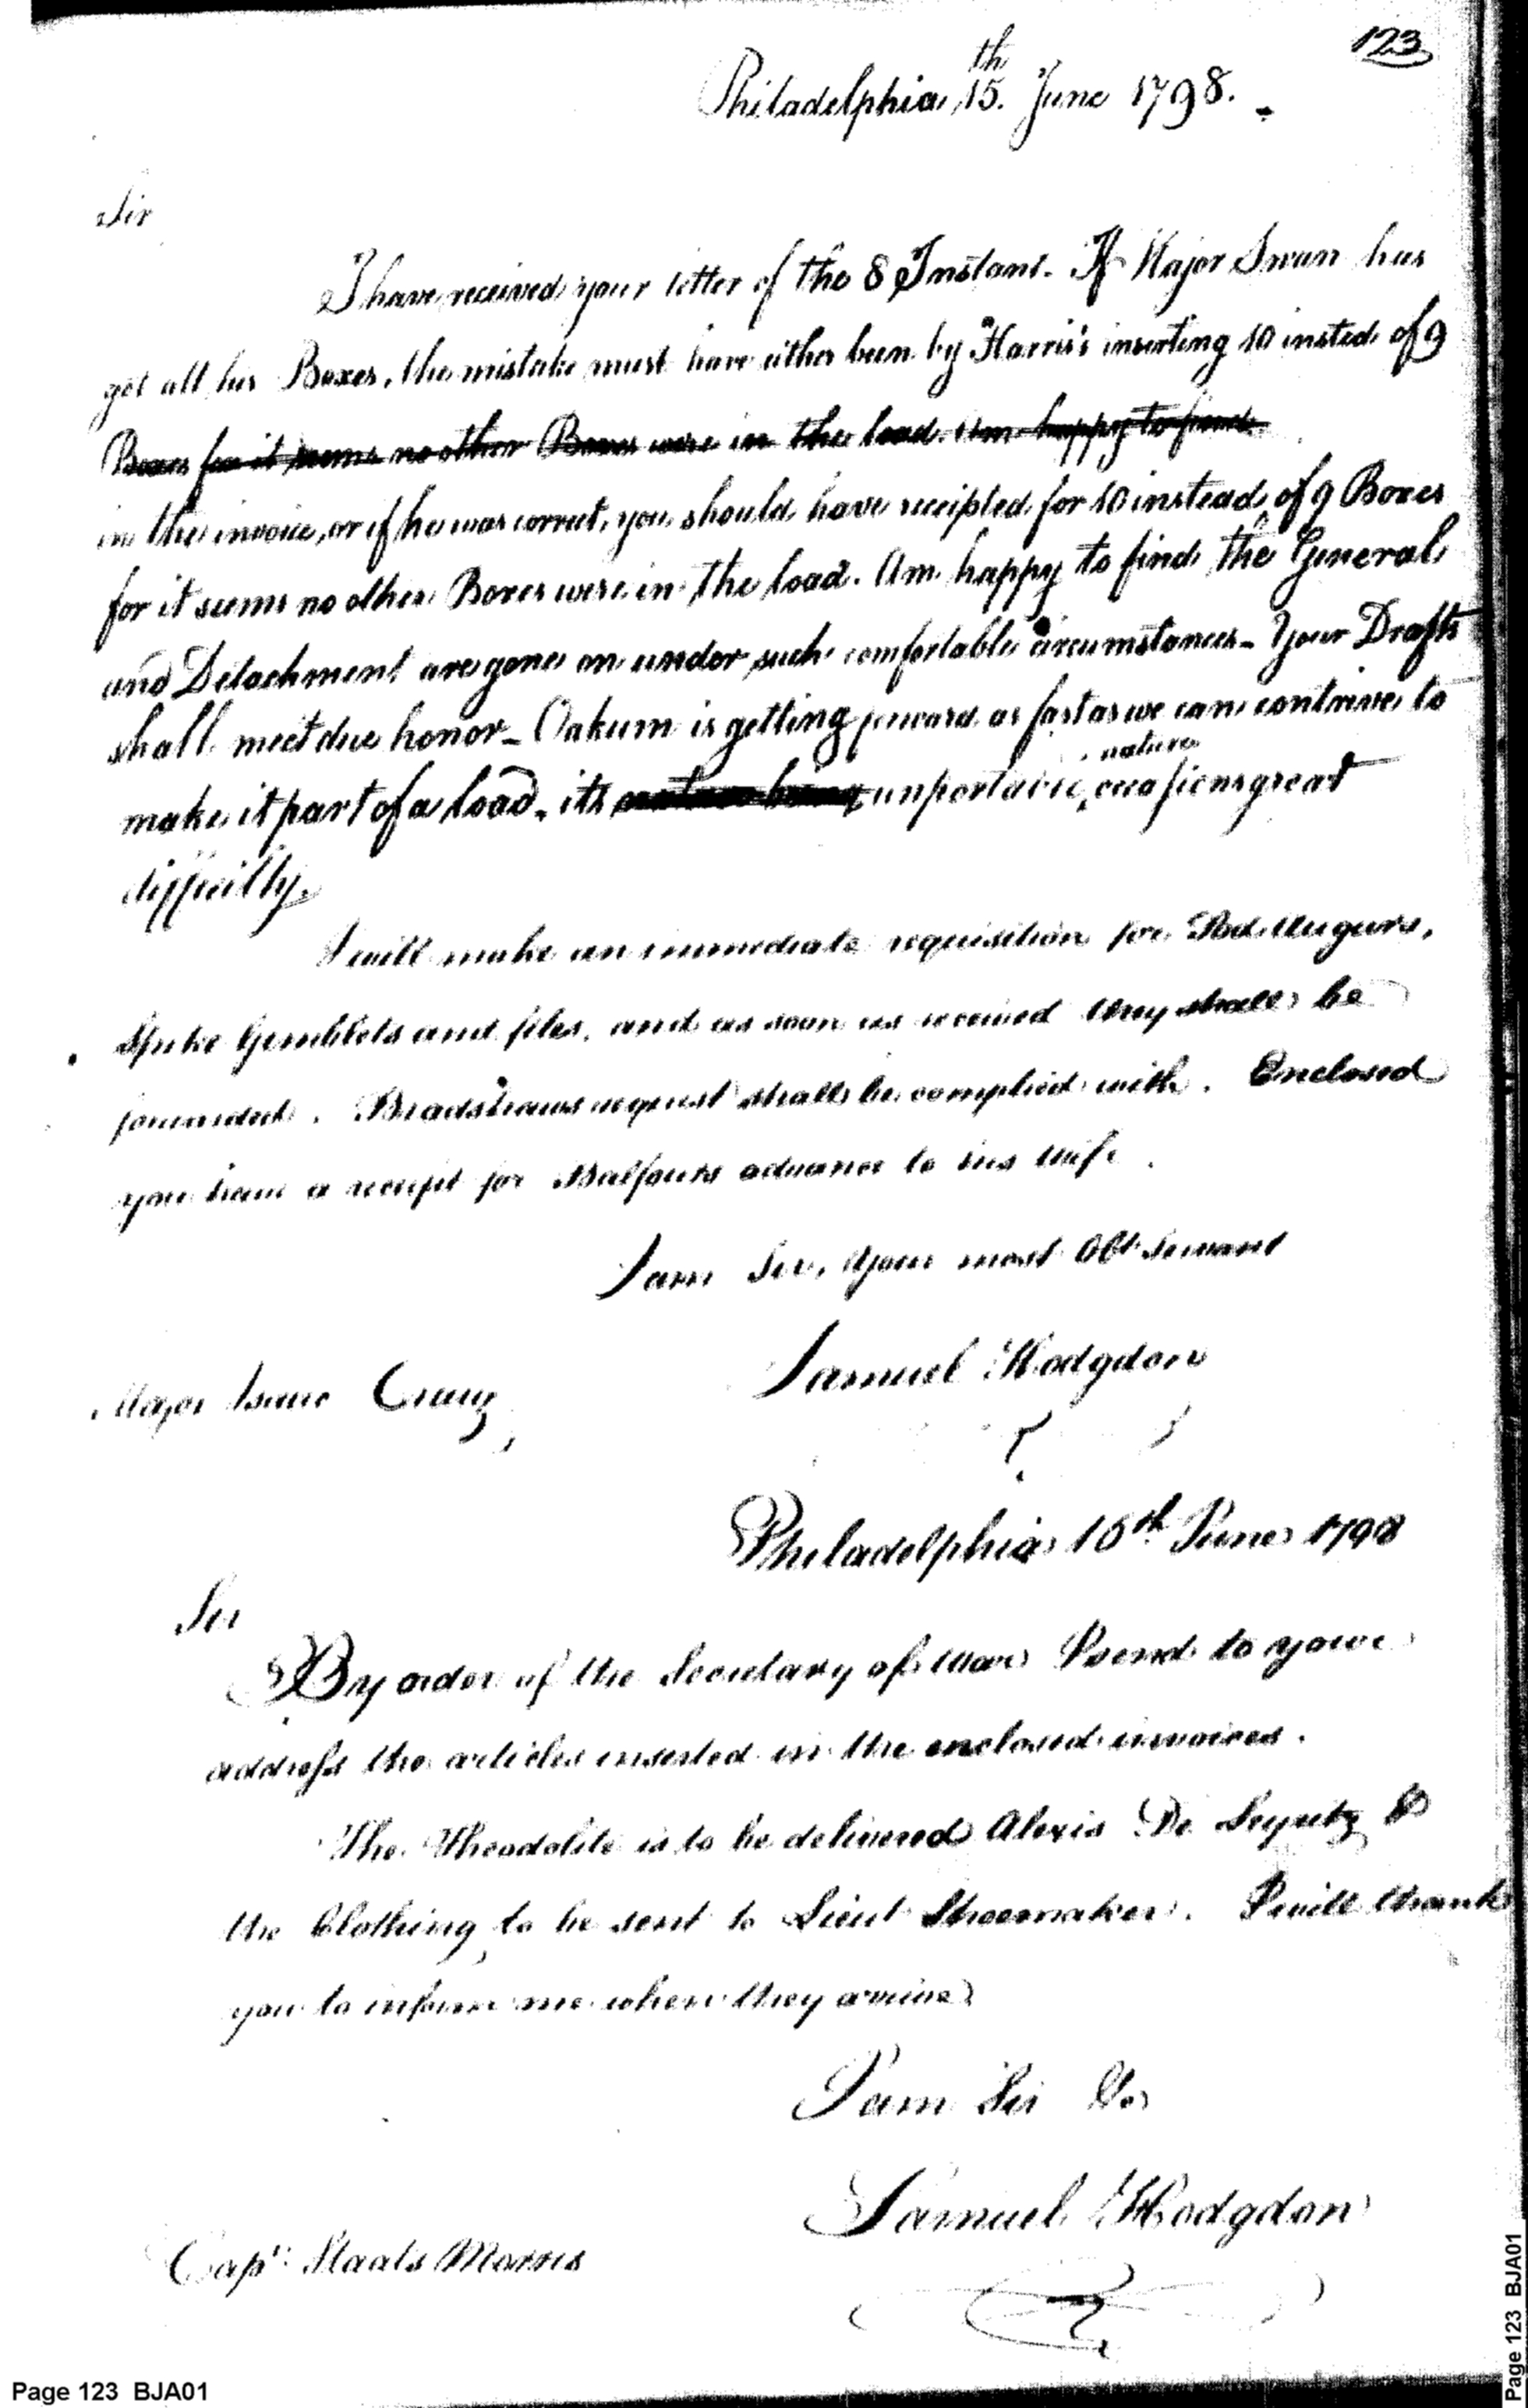 123
Philadelphia 15.th June 1798.
Sir
I have received your letter of the 8 Instant. If Major Swan has
got all his Boxes, the mistake must have either been by Harris's inserting 10 insted of 9
Boxes for it seems no other Boxes were in the load. Am happy to find
in the invoice, or if he was correct, you should have receipted for 10 instead of 9 Boxes
for it seems no other Boxes were in the load. Am happy to find the General
and Detachment are gone on under such comfortable circumstances - Your Drafts
shall meet due honor - Oakum is getting forward as fast as we can contrive to
make it part of a load - its nature being unportable nature occasions great
difficulty.
I will make an immediate requisition for Pod Augurs,
Spike Gimblets and files, and as soon as received they shall be
forwarded. Bradshaws request shall be complied with. Enclosed
you have a receipt for Balfours advance to his wife.
I am Sir, Your most Obt Servant
Samuel Hodgdon
Major Isaac Craig
Philadelphia 15th June 1798
Sir
By order of the Secretary of War I send to your
address the articles inserted in the enclosed invoices.
The Theodolite is to be delivered Alexis De &
the Clothing to be sent to Lieut Shoemaker. I will thank
you to inform me when they arrive
I am Sir &c
Samuel Hodgdon
Capt. Staats Morris
Page 123 BJA01
Page 123 BJA01